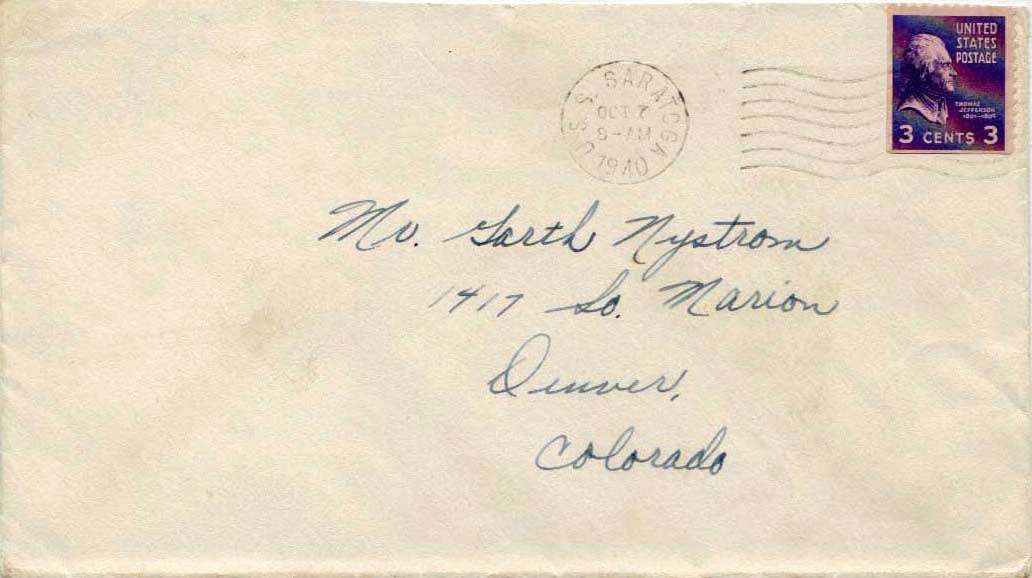 U.S.S. SARATOGA
OCT 7
8-AM
1940
UNITED
STATES
POSTAGE
THOMAS
JEFFERSON
1801-1809
3 CENTS 3
Mr. Garth Nystrom
1417 So. Marion
Denver,
Colorado